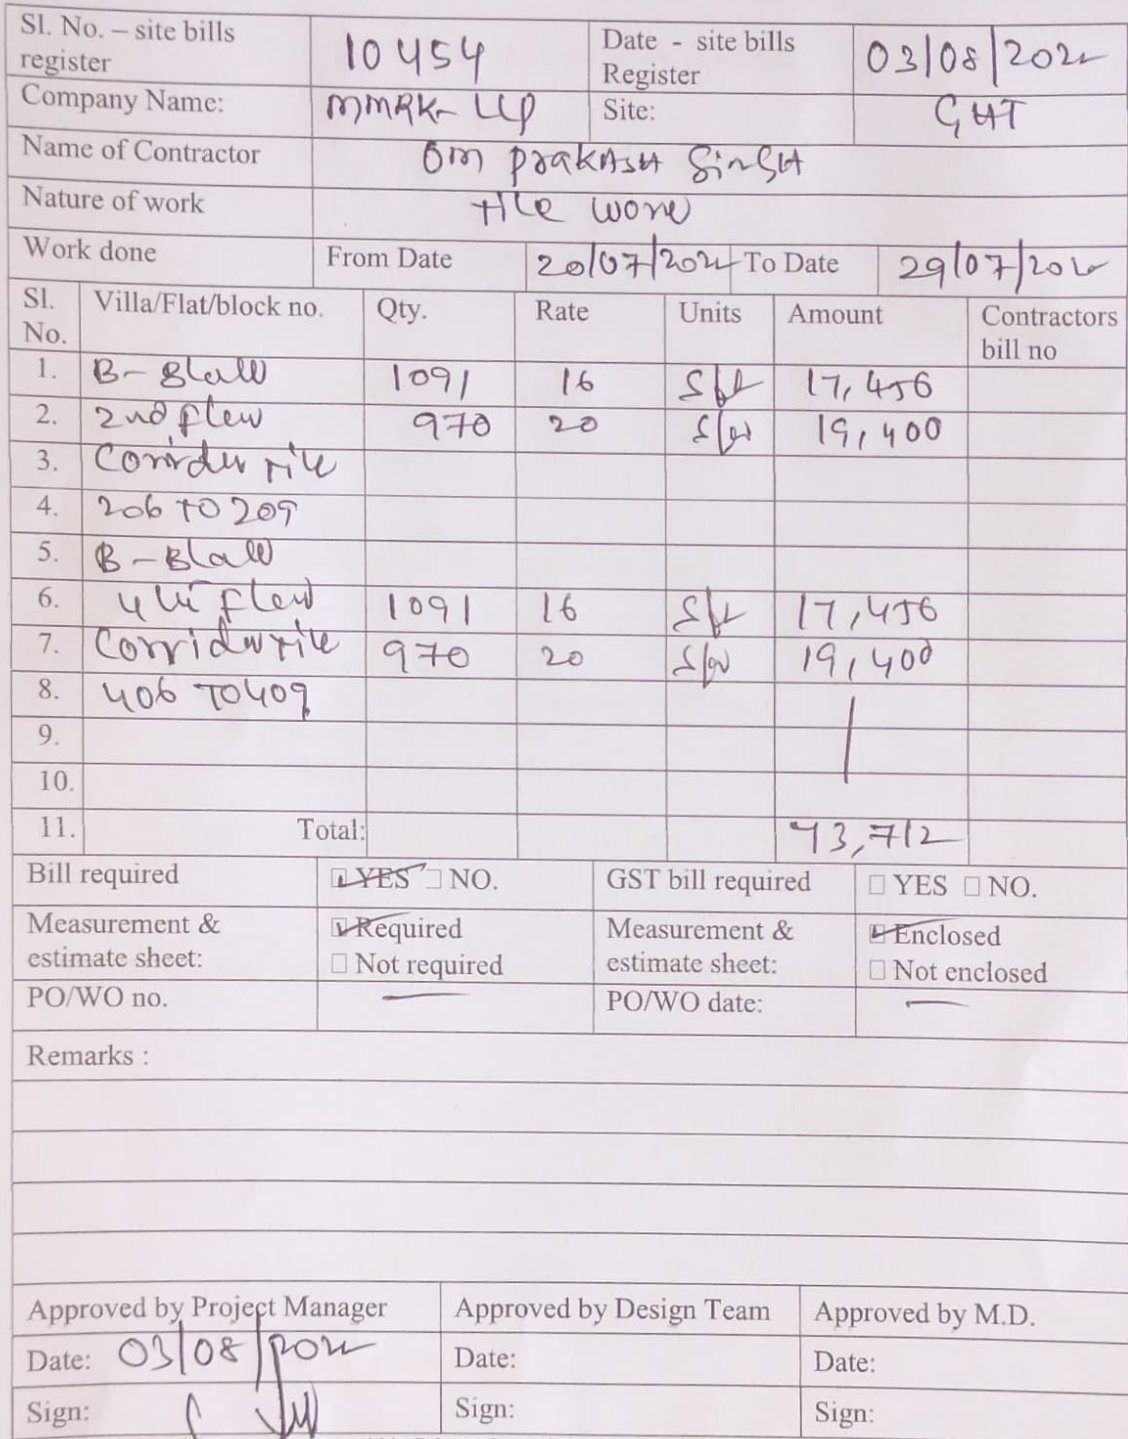 Sl. No. – site bills register 10454 Date - site bills Register 03/08/202
Company Name: MMRK LLP Site: GHT
Name of Contractor Om prakASH SinGH
Nature of work tile
Work done From Date 20/07/202 To Date 29/07/202
Sl. No. Villa/Flat/block no. Qty. Rate Units Amount Contractors bill no
1. B- 1091 16 Sft 17,456
2. 2nd 970 20 19,400
3.
4. 206 TO 209
5. B-
6. 1091 16 Sft 17,456
7. 970 20 19,400
8. 406 TO 409
9.
10.
11. Total: 73,712
Bill required YES NO. GST bill required YES NO.
Measurement & estimate sheet: Required Measurement & estimate sheet: Enclosed
Not required Not enclosed
PO/WO no. — PO/WO date: —
Remarks :
Approved by Project Manager Approved by Design Team Approved by M.D.
Date: 03/08/202 Date: Date:
Sign: Sign: Sign: